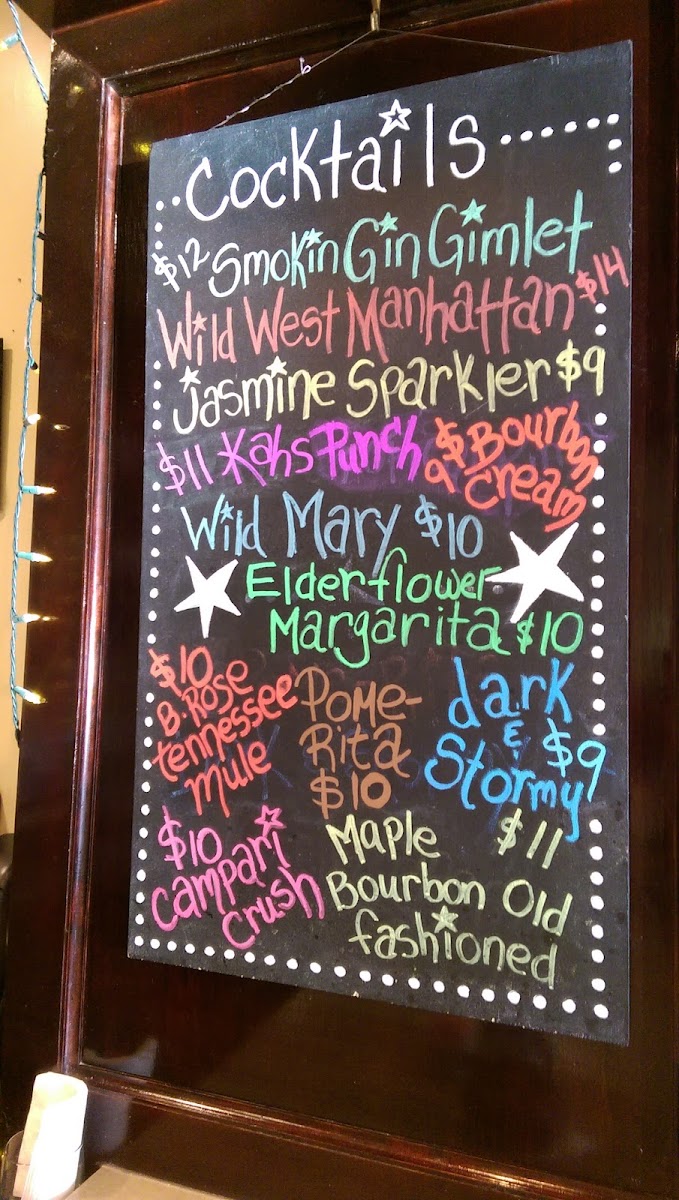 Cocktails
$12 Smokin Gin Gimlet
Wild West Manhattan $14
Jasmine Sparkler $9
$11 Kahs Punch
$9 Bourbon
Cream
Wild Mary $10
Elderflower
Margarita $10
$10
B. Rose
tennessee
mule
Pome-
Rita
$10
dark
& $9
Stormy
$10
Campari
Crush
Maple $11
Bourbon Old
fashioned